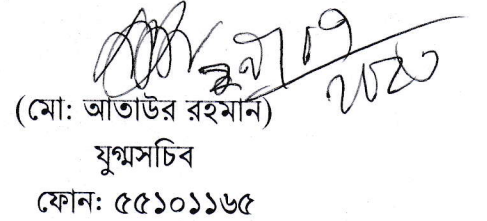 (মো: আতাউর রহমান)
যুগ্মসচিব
ফোন: ৫৫১০১১৬৫